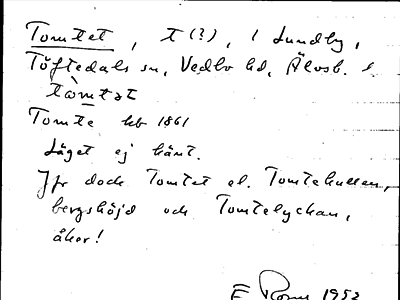 Tomtet, t(?), i Lundby,
Töftedals sn, Vedbo hd, Älvsb. l
tòmtət
Tomte hb 1861
Läget ej känt.
Jfr dock Tomtet el. Tomtekullen,
bergshöjd och Tomtelyckan,
åker!
E 1952